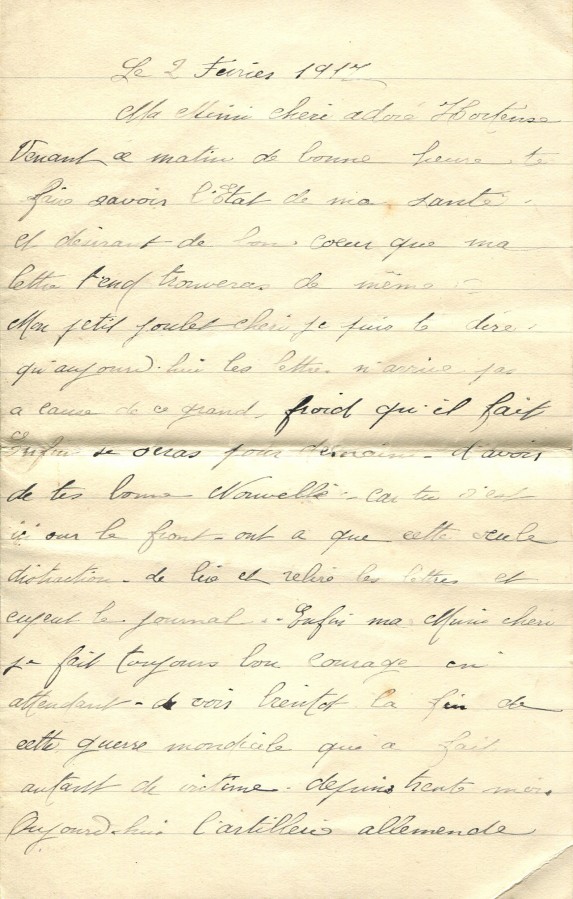 Le 2 Fevrier 1917
Ma Mimi cheri adoré Hortense
Venant ce matin de bonne heure te
faire savoir l'Etat de ma santé.
et désirant de bon coeur que ma
lettre t'end trouveras de même
Mon petit poulet cheri je puis te dire
qu'aujourd'hui les lettres n'arrive pas
a cause de ce grand froid qu'il fait
Enfin se seras pour demain d'avoir
de tes bonne Nouvelle car tu s'est
ici sur le front ont a que cette seule
distraction de lire et relire les lettres et
le journal. Enfin ma Mimi cheri
je fait toujours bon courage en
attendant de voir bientot la fin de
cette guerre mondiale qui a fait
autant de victime depuis trente mois.
Aujourd-hui l'artillerie allemende